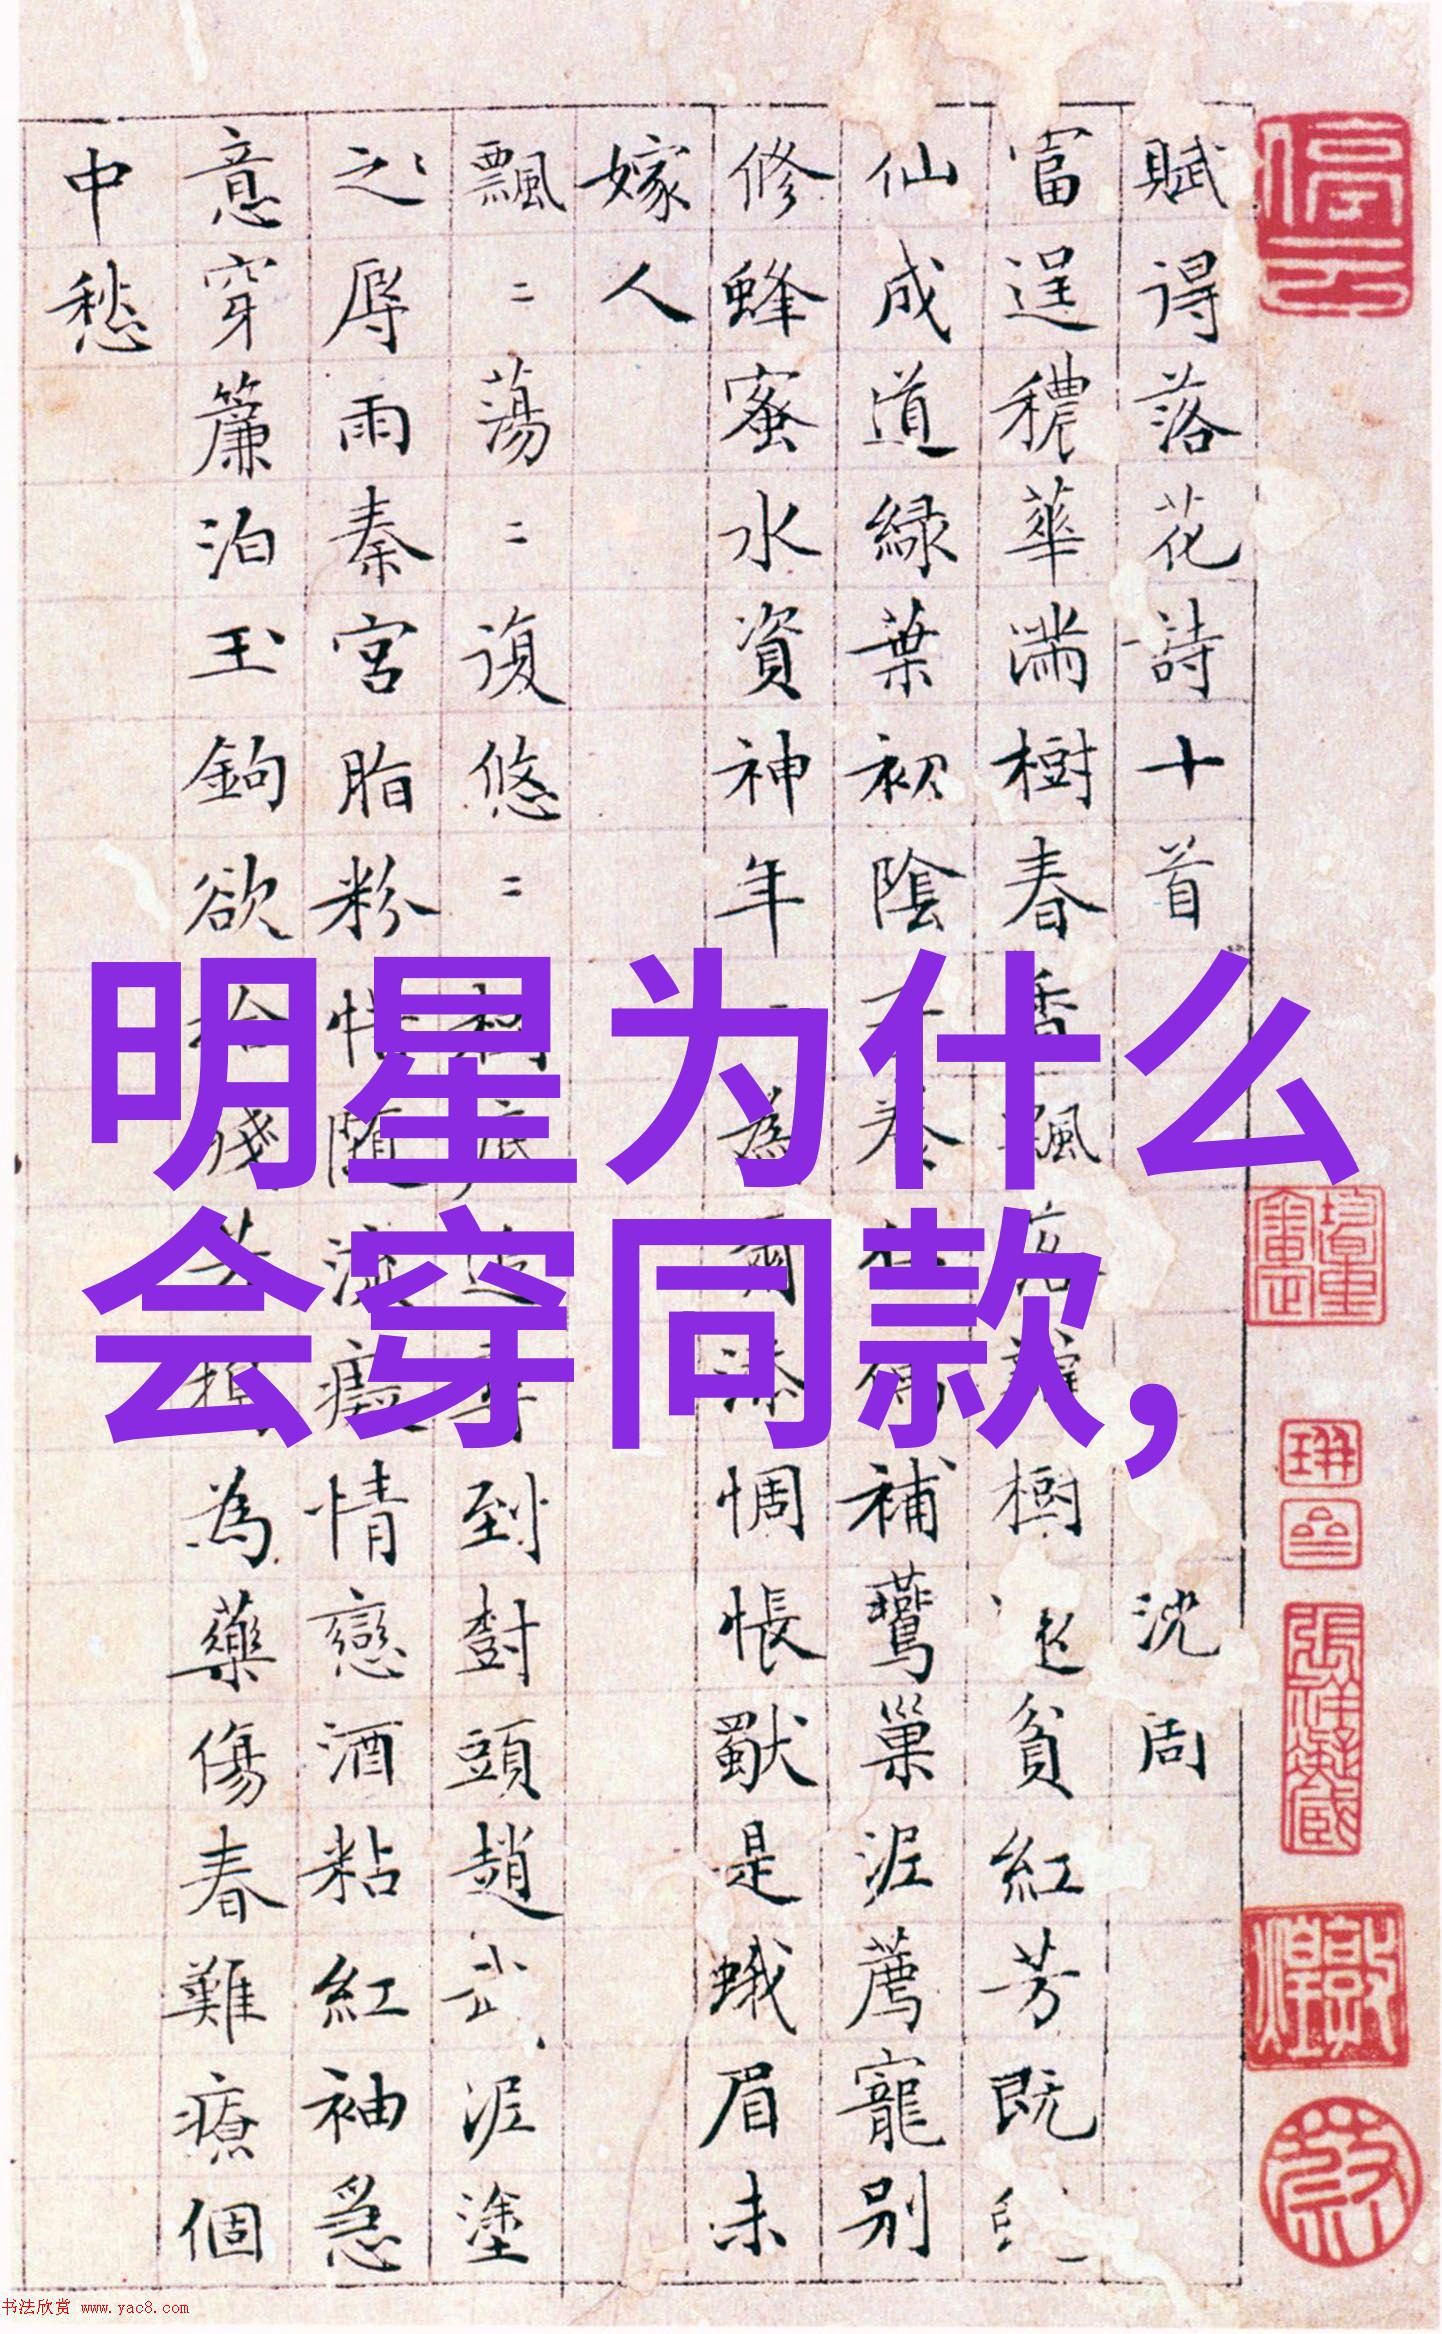 賦得落花詩十首 沈周
富逞穠華滿樹春香飄落樹貧紅芳既
仙成道綠葉初陰補鶯巢泥薦寵別
修蜂蜜水資神年為惆悵獸是蛾眉未
嫁人
飄〻蕩〻復悠〻到樹頭趙武泥塗
之辱雨秦宮脂粉惜隨流癡情戀酒粘紅袖急
意穿簾泊玉鉤欲拾殘為藥傷春難療個
中愁
明星为什么
会穿同款,
书法欣赏 www.yac8.com